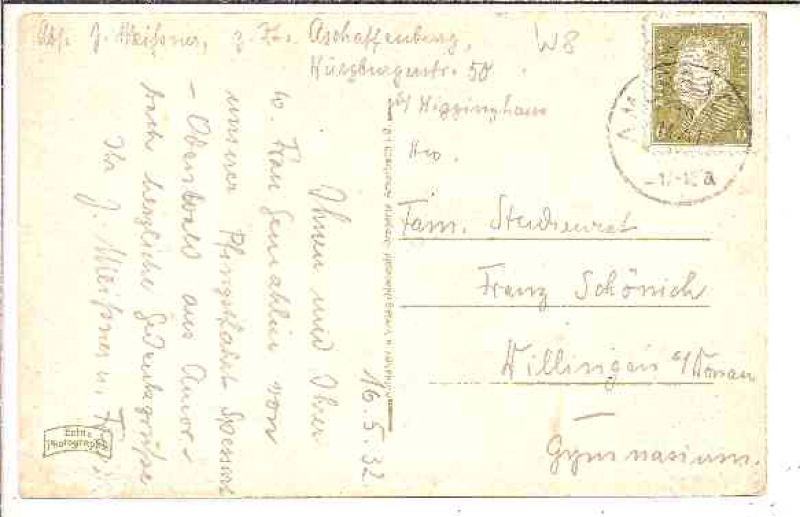 Abs. J. Meißner, z. Zt. Aschaffenburg,
Würzburgerstr. 50
W8
b/ Wigginghaus
16.5.32
Ihnen und Ihrer
w. Frau Gemahlin von
unserer Pfingstfahrt Spessart
- Odenwald aus Amor-
bach herzliche Gedenkgrüße
Ihr J. Meißner u. Frau
Fam. Studienrat
Franz Schönich
Villingen a/Donau
Gymnasium.
Echte
Photographie